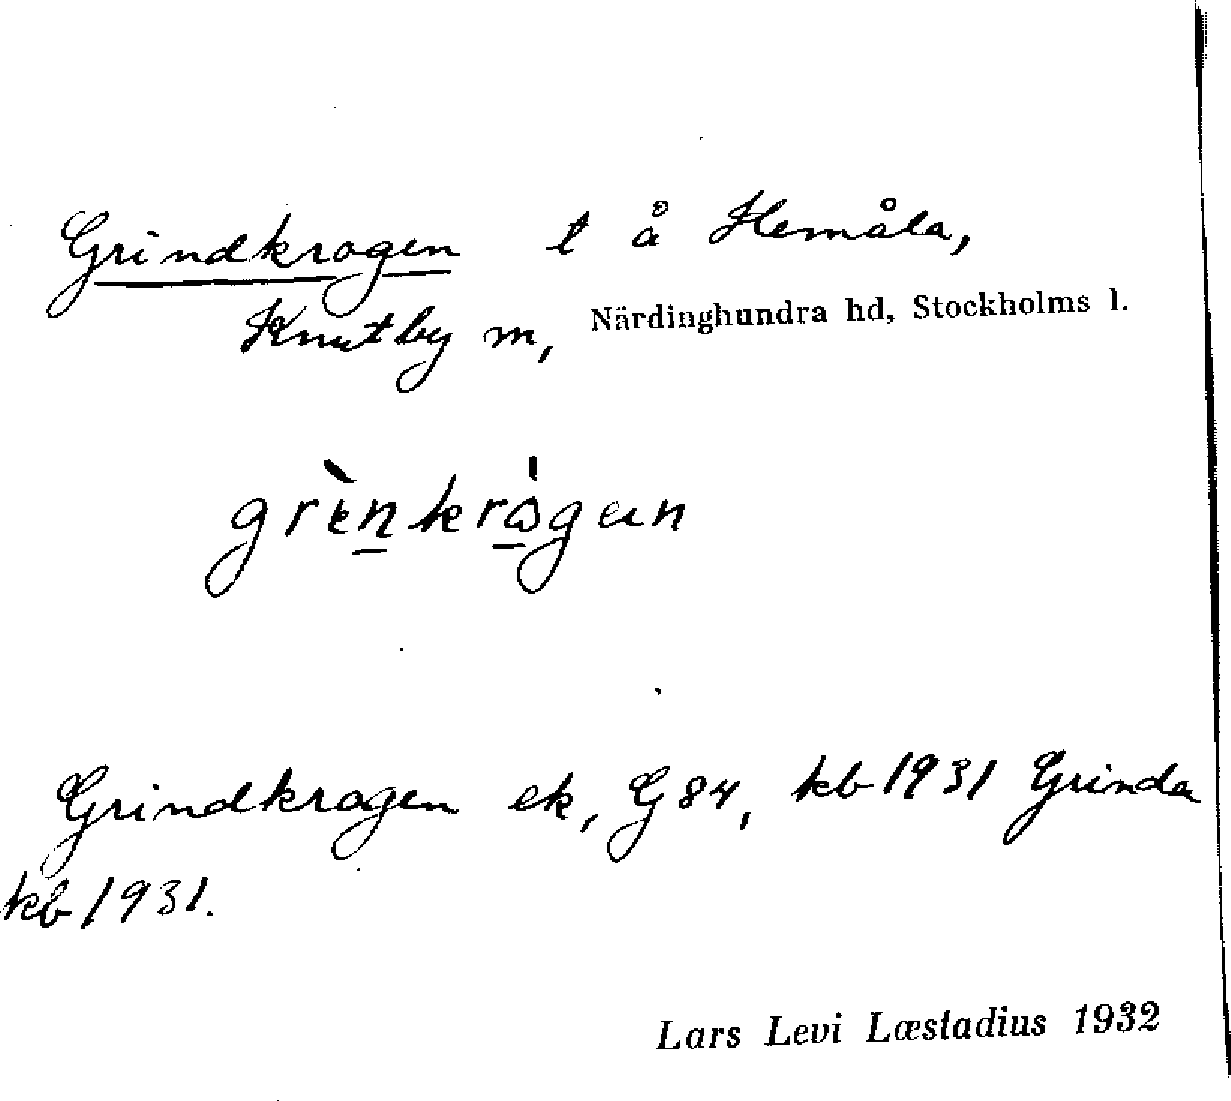 Grindkrogen t å Hemåla,
Knutby m, Närdinghundra hd, Stockholms l.
grènkrògan
Grindkrogen ek, G 84, kb 1931 Grinda
kb 1931.
Lars Levi Læstadius 1932